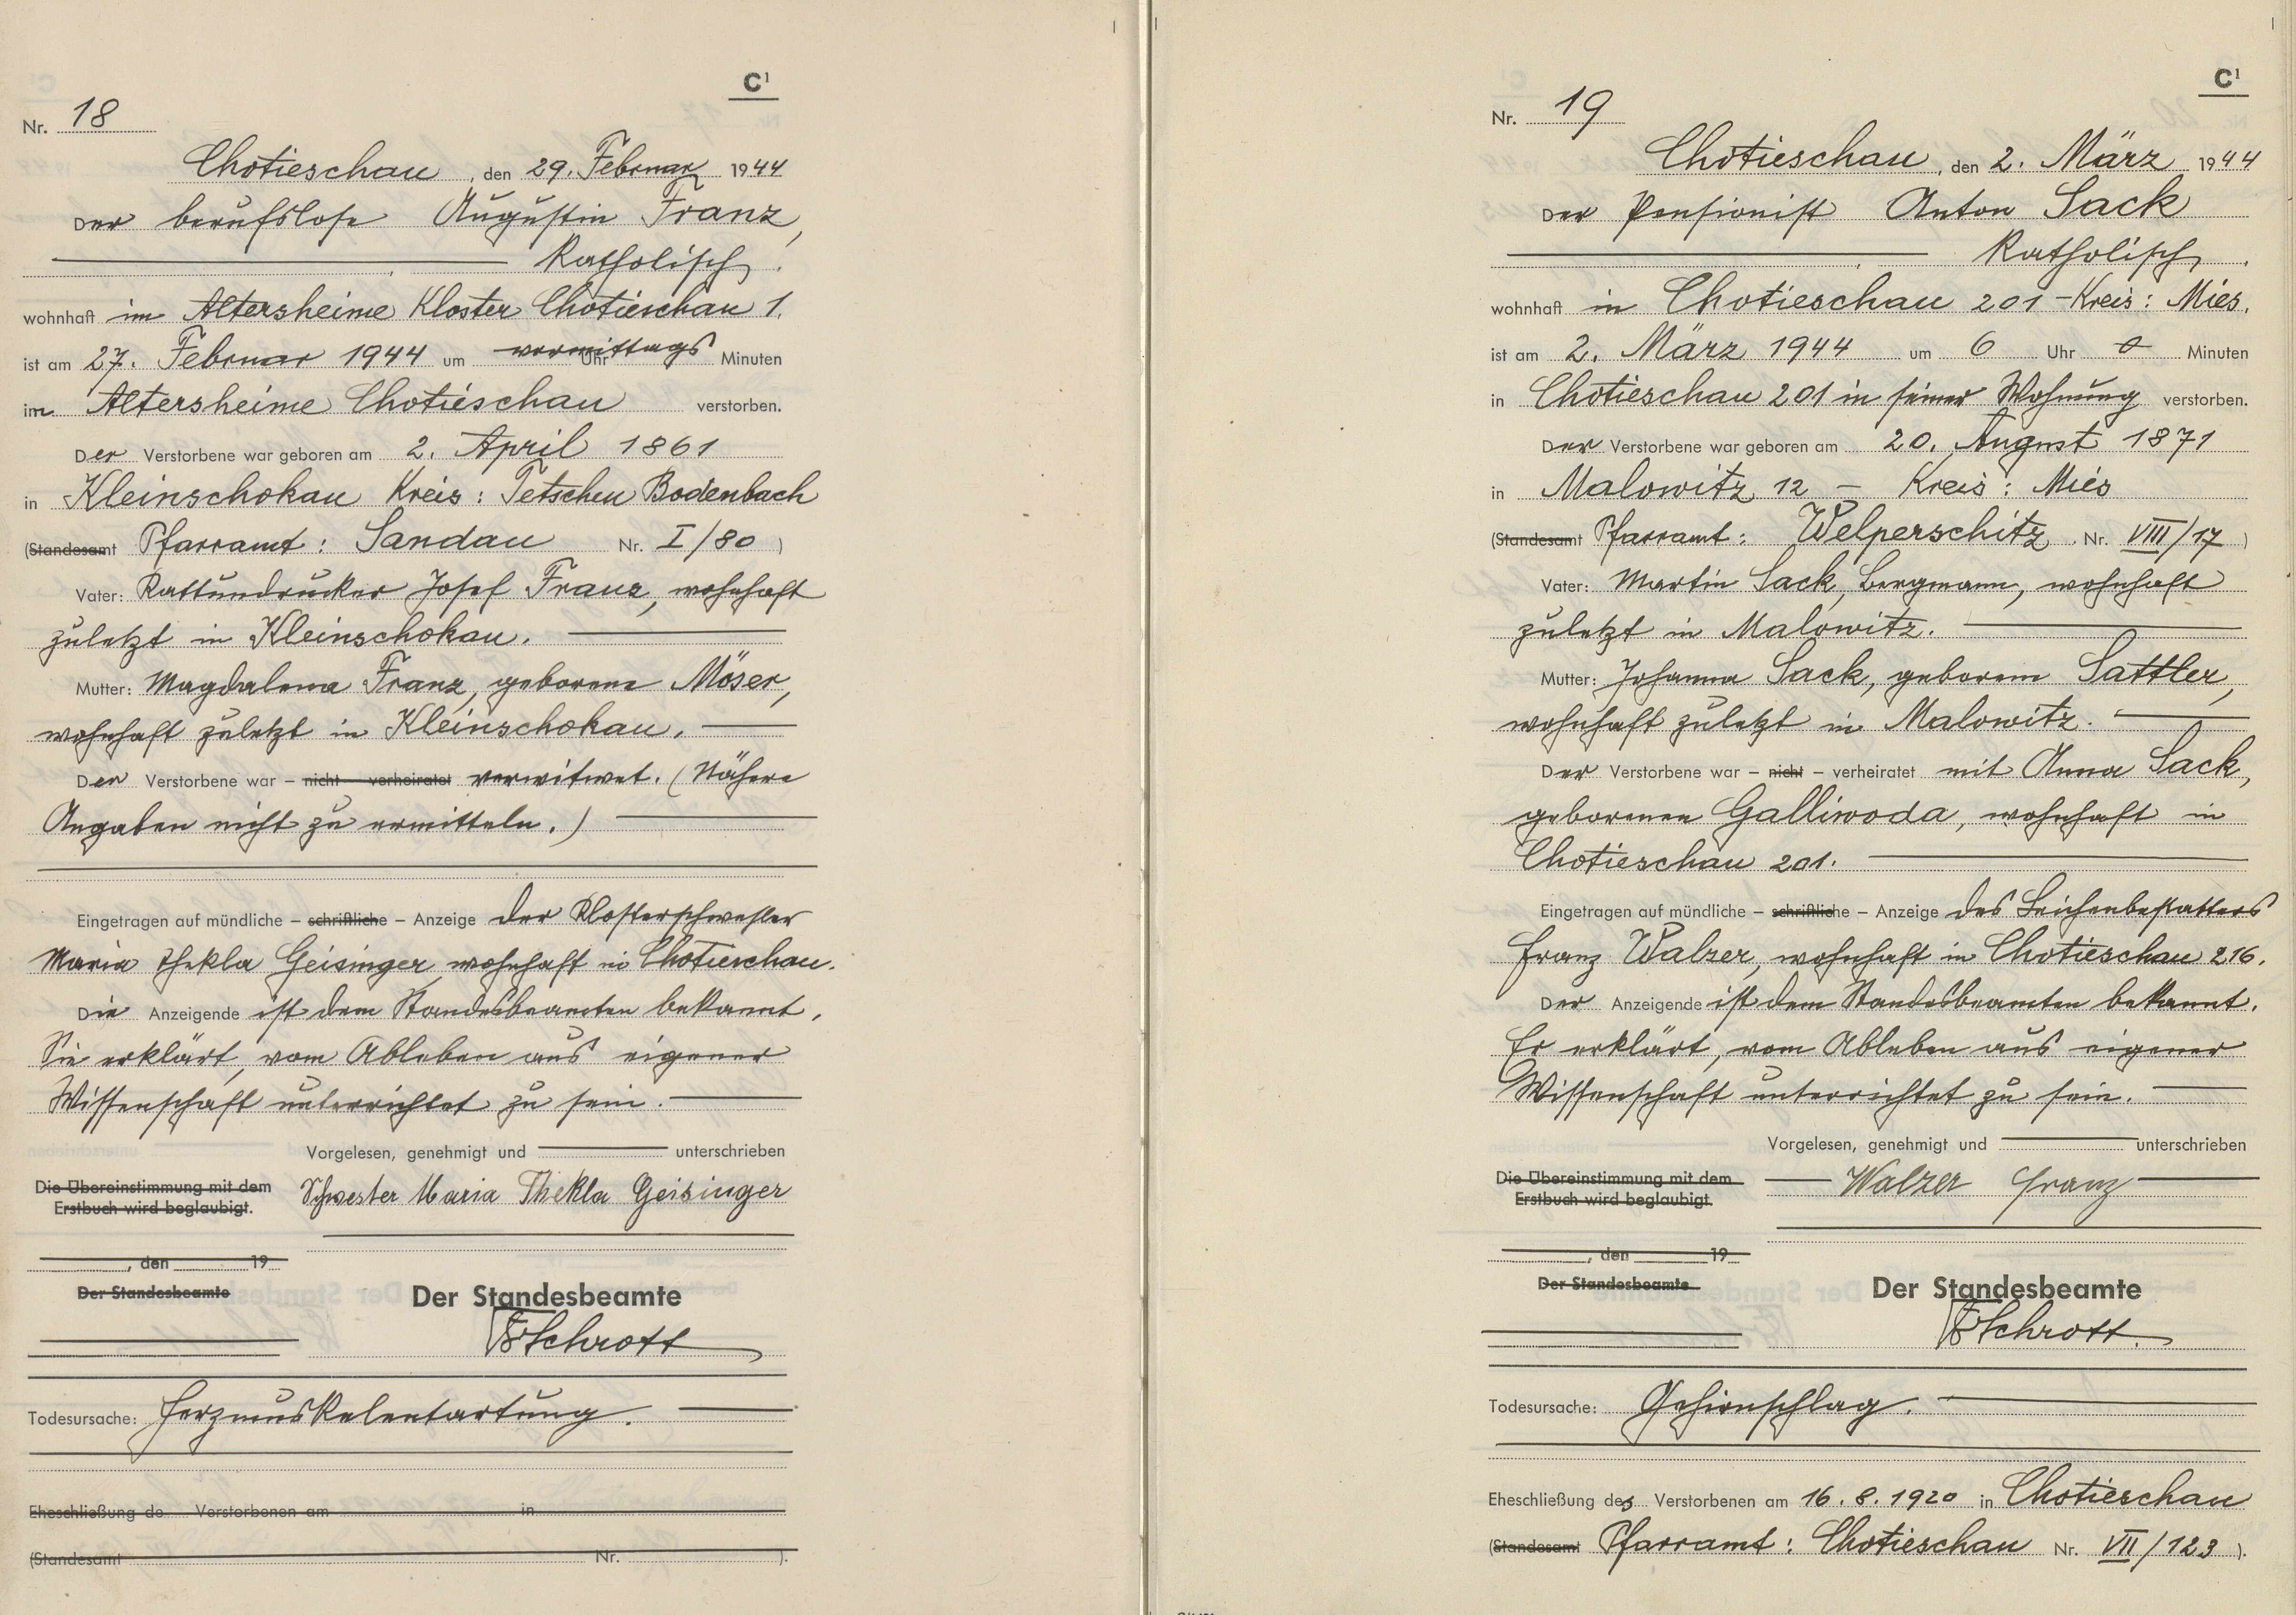 C¹
Nr. 18
Chotieschau, den 29. Februar 1944
Der berufslose Augustin Franz,
Katholisch.
wohnhaft im Altersheime Kloster Chotieschau 1.
ist am 27. Februar 1944 um vormittags Uhr Minuten
im Altersheime Chotieschau verstorben.
Der Verstorbene war geboren am 2. April 1861
in Kleinschokau Kreis: Tetschen Bodenbach
(Standesamt Pfarramt: Sandau Nr. I/80 )
Vater: Kattundrucker Josef Franz, wohnhaft
zuletzt in Kleinschokau.
Mutter: Magdalena Franz, geborene Möser,
wohnhaft zuletzt in Kleinschokau.
Der Verstorbene war – nicht – verheiratet verwitwet. (Nähere
Angaben nicht zu ermitteln.)
Eingetragen auf mündliche – schriftliche – Anzeige der Klosterschwester
Maria Thekla Geisinger wohnhaft in Chotieschau.
Die Anzeigende ist dem Standesbeamten bekannt.
Sie erklärt, vom Ableben aus eigener
Wissenschaft unterrichtet zu sein.
Vorgelesen, genehmigt und unterschrieben
Die Übereinstimmung mit dem
Erstbuch wird beglaubigt.
Schwester Maria Thekla Geisinger
, den 19
Der Standesbeamte
Der Standesbeamte
Schrott
Todesursache: Herzmuskelentartung.
Eheschließung de Verstorbenen am in
(Standesamt Nr. ).
C¹
Nr. 19
Chotieschau, den 2. März 1944
Der Pensionist Anton Sack
Katholisch.
wohnhaft in Chotieschau 201 – Kreis: Mies.
ist am 2. März 1944 um 6 Uhr 0 Minuten
in Chotieschau 201 in seiner Wohnung verstorben.
Der Verstorbene war geboren am 20. August 1871
in Malowitz 12 – Kreis: Mies
(Standesamt Pfarramt: Welperschitz Nr. VIII/17 )
Vater: Martin Sack, Bergmann, wohnhaft
zuletzt in Malowitz.
Mutter: Johanna Sack, geborene Sattler,
wohnhaft zuletzt in Malowitz.
Der Verstorbene war – nicht – verheiratet mit Anna Sack,
geborenen Galliwoda, wohnhaft in
Chotieschau 201.
Eingetragen auf mündliche – schriftliche – Anzeige des Leichenbestatters
Franz Walzer, wohnhaft in Chotieschau 216.
Der Anzeigende ist dem Standesbeamten bekannt.
Er erklärt, vom Ableben aus eigener
Wissenschaft unterrichtet zu sein.
Vorgelesen, genehmigt und unterschrieben
Die Übereinstimmung mit dem
Erstbuch wird beglaubigt.
Walzer Franz
, den 19
Der Standesbeamte
Der Standesbeamte
Schrott
Todesursache: Gehirnschlag.
Eheschließung des Verstorbenen am 16.8.1920 in Chotieschau
(Standesamt Pfarramt: Chotieschau Nr. VII/123 ).